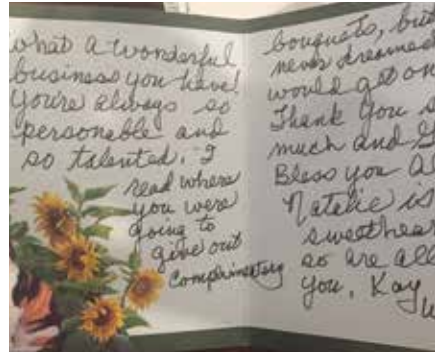 What a wonderful
business you have!
You're always so
personable and
so talented. I
read where
you were
going to
give out
complimentary
bouquets, but
never dreamed
would get on
Thank you s
much and G
Bless you Al
Natalie is
sweethear
so are all
you, Kay
W